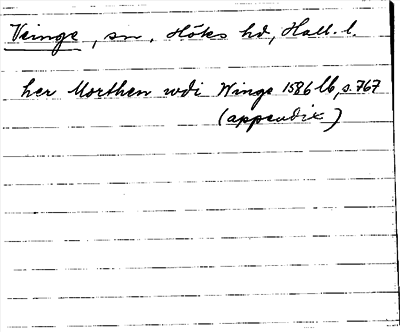 Veinge, sn, Höks hd, Hall. l.
her Morthen wdi Winge 1586 lb, s. 767
(appendix)